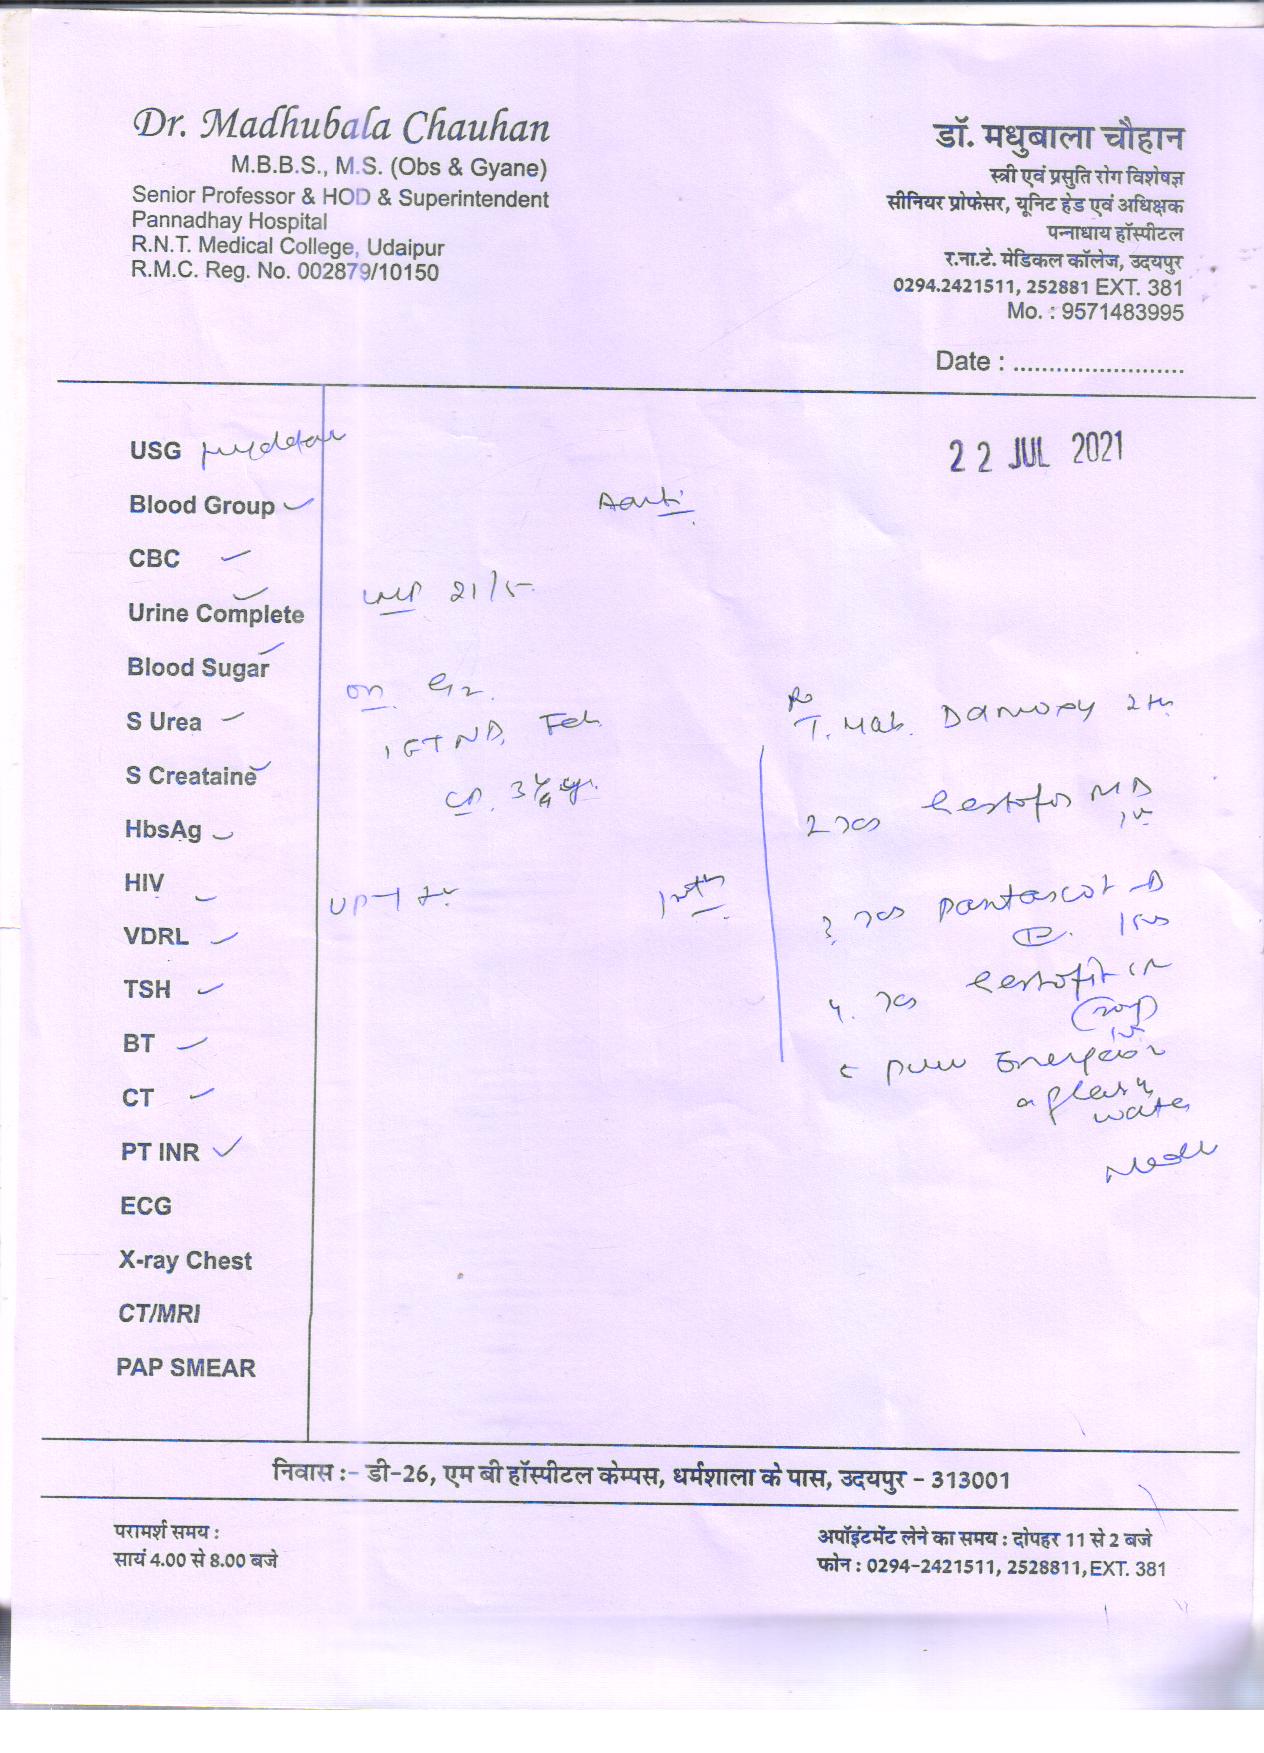 Dr. Madhubala Chauhan
M.B.B.S., M.S. (Obs & Gyane)
Senior Professor & HOD & Superintendent
Pannadhay Hospital
R.N.T. Medical College, Udaipur
R.M.C. Reg. No. 002879/10150
डॉ. मधुबाला चौहान
स्त्री एवं प्रसुति रोग विशेषज्ञ
सीनियर प्रोफेसर, यूनिट हेड एवं अधिक्षक
पन्नाधाय हॉस्पीटल
र.ना.टे. मेडिकल कॉलेज, उदयपुर
0294.2421511, 252881 EXT. 381
Mo. : 9571483995
Date : ........................
22 JUL 2021
USG
Blood Group
CBC
Urine Complete
Blood Sugar
S Urea
S Creataine
HbsAg
HIV
VDRL
TSH
BT
CT
PT INR
ECG
X-ray Chest
CT/MRI
PAP SMEAR
Aarti
LMP 21/5
on G2
1 FTND, Feh
CD. 3 1/2 yr.
UPT +ve
Rx
2
3.
4.
a glass of
water
निवास :- डी-26, एम बी हॉस्पीटल केम्पस, धर्मशाला के पास, उदयपुर - 313001
परामर्श समय :
सायं 4.00 से 8.00 बजे
अपॉइंटमेंट लेने का समय : दोपहर 11 से 2 बजे
फोन : 0294-2421511, 2528811, EXT. 381